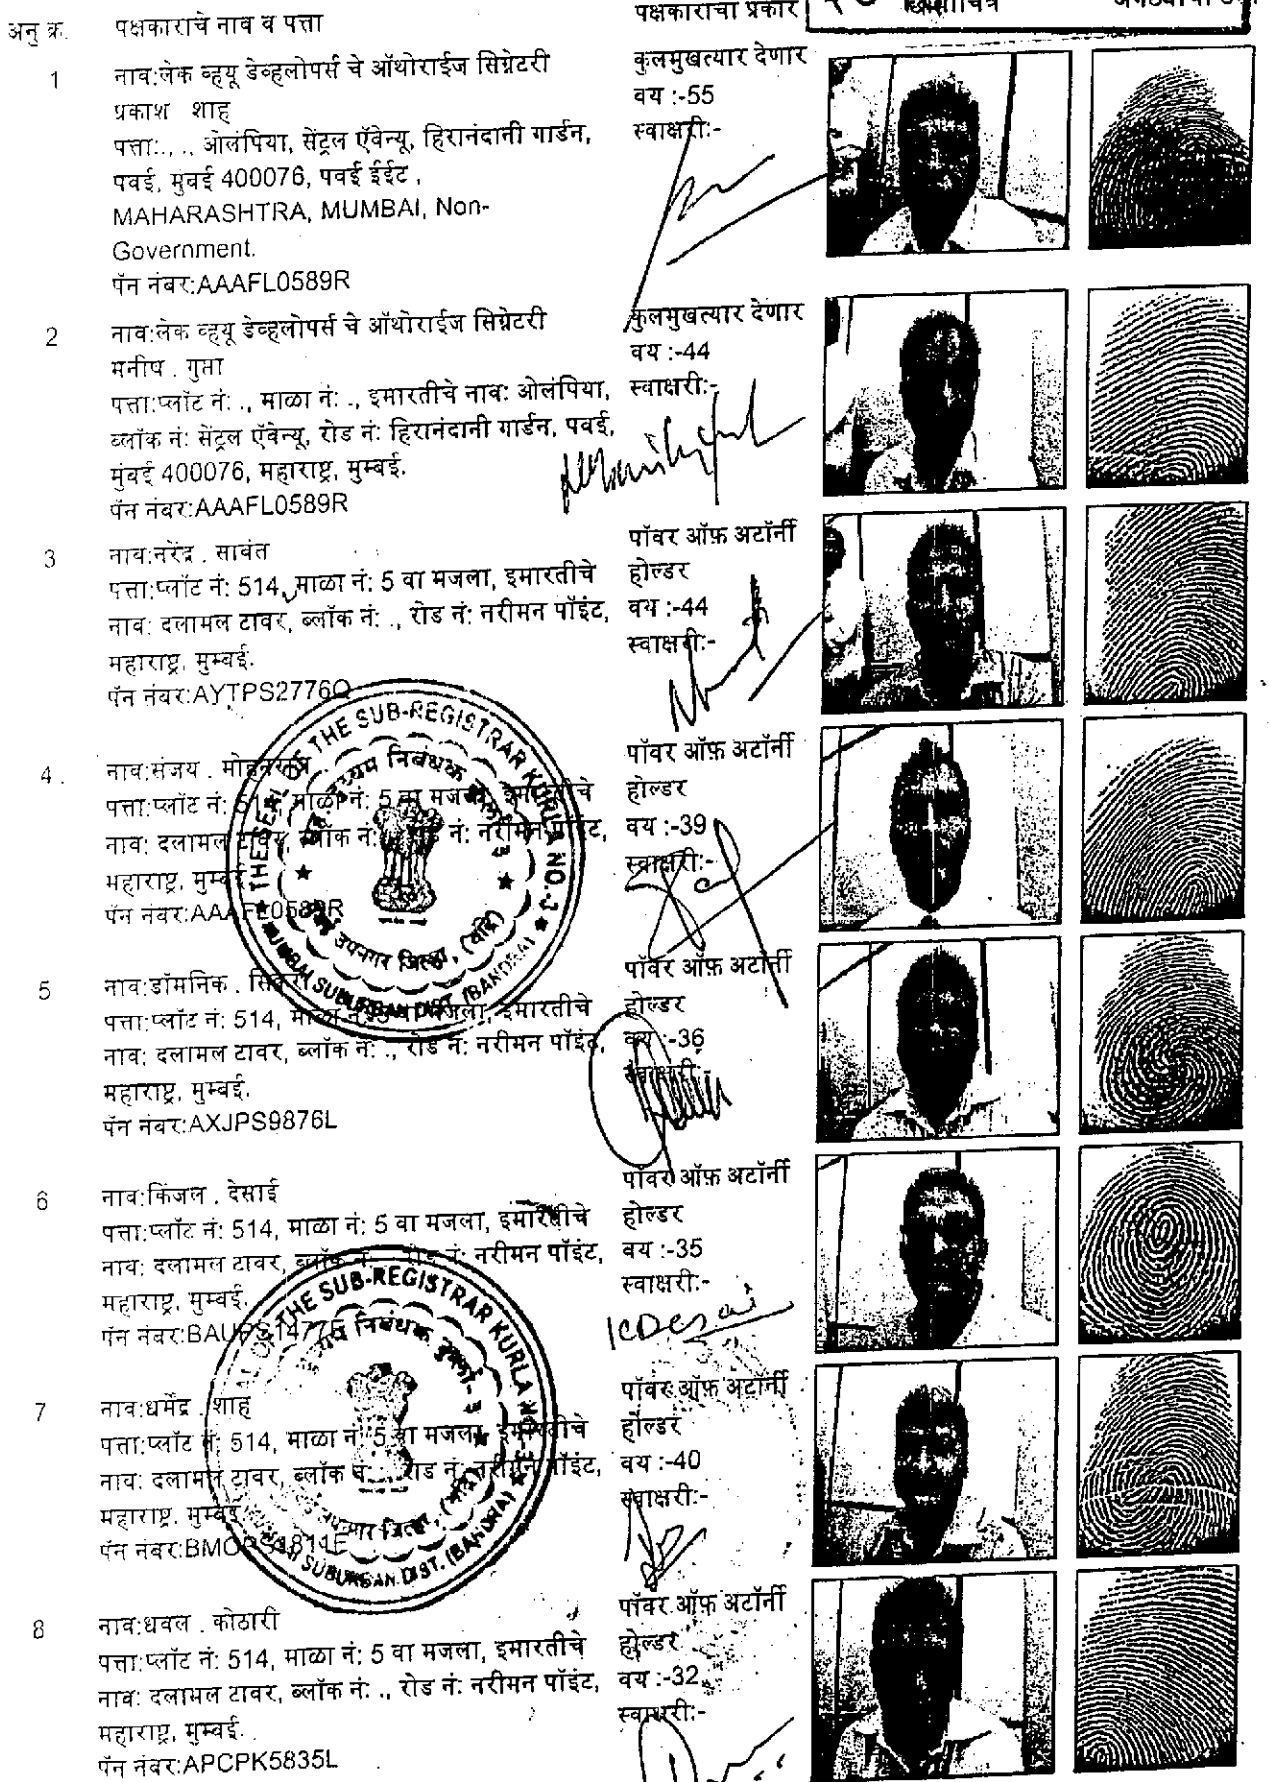 अनु क्र. पक्षकाराचे नाव व पत्ता पक्षकाराचा प्रकार छायाचित्र
1 नाव:लेक व्हयू डेव्हलोपर्स चे ऑथोराईज सिग्नेटरी
प्रकाश शाह
पत्ता:., ., ओलंपिया, सेंट्रल ऍवेन्यू, हिरानंदानी गार्डन,
पवई, मुंबई 400076, पवई ईईट ,
MAHARASHTRA, MUMBAI, Non-
Government.
पॅन नंबर:AAAFL0589R
कुलमुखत्यार देणार
वय :-55
स्वाक्षरी:-
2 नाव:लेक व्हयू डेव्हलोपर्स चे ऑथोराईज सिग्नेटरी
मनीष . गुप्ता
पत्ता:प्लॉट नं: ., माळा नं: ., इमारतीचे नाव: ओलंपिया,
ब्लॉक नं: सेंट्रल ऍवेन्यू, रोड नं: हिरानंदानी गार्डन, पवई,
मुंबई 400076, महाराष्ट्र, मुम्बई.
पॅन नंबर:AAAFL0589R
कुलमुखत्यार देणार
वय :-44
स्वाक्षरी:-
3 नाव:नरेंद्र . सावंत
पत्ता:प्लॉट नं: 514, माळा नं: 5 वा मजला, इमारतीचे
नाव: दलामल टावर, ब्लॉक नं: ., रोड नं: नरीमन पॉइंट,
महाराष्ट्र, मुम्बई.
पॅन नंबर:AYTPS2776Q
पॉवर ऑफ़ अटॉर्नी
होल्डर
वय :-44
स्वाक्षरी:-
4 नाव:संजय .
पत्ता:प्लॉट नं: 514, माळा नं: 5 वा मजला, इमारतीचे
नाव: दलामल टावर, ब्लॉक नं: ., रोड नं: नरीमन पॉइंट,
महाराष्ट्र, मुम्बई.
पॅन नंबर:AAAFL0589R
पॉवर ऑफ़ अटॉर्नी
होल्डर
वय :-39
स्वाक्षरी:-
THE SEAL OF THE SUB-REGISTRAR KURLA NO.
MUMBAI SUBURBAN DIST. (BANDRA)
5 नाव:डॉमनिक .
पत्ता:प्लॉट नं: 514, माळा नं: 5 वा मजला, इमारतीचे
नाव: दलामल टावर, ब्लॉक नं: ., रोड नं: नरीमन पॉइंट,
महाराष्ट्र, मुम्बई.
पॅन नंबर:AXJPS9876L
पॉवर ऑफ़ अटॉर्नी
होल्डर
वय :-36
स्वाक्षरी:-
6 नाव:किंजल . देसाई
पत्ता:प्लॉट नं: 514, माळा नं: 5 वा मजला, इमारतीचे
नाव: दलामल टावर, ब्लॉक नं: ., रोड नं: नरीमन पॉइंट,
महाराष्ट्र, मुम्बई.
पॅन नंबर:
पॉवर ऑफ़ अटॉर्नी
होल्डर
वय :-35
स्वाक्षरी:-
KDesai
THE SUB-REGISTRAR KURLA NO-3
SUBURBAN DIST. (BANDRA)
7 नाव:धर्मेंद्र . शाह
पत्ता:प्लॉट नं: 514, माळा नं: 5 वा मजला, इमारतीचे
नाव: दलामल टावर, ब्लॉक नं: ., रोड नं: नरीमन पॉइंट,
महाराष्ट्र, मुम्बई.
पॅन नंबर:
पॉवर ऑफ़ अटॉर्नी
होल्डर
वय :-40
स्वाक्षरी:-
8 नाव:धवल . कोठारी
पत्ता:प्लॉट नं: 514, माळा नं: 5 वा मजला, इमारतीचे
नाव: दलामल टावर, ब्लॉक नं: ., रोड नं: नरीमन पॉइंट,
महाराष्ट्र, मुम्बई.
पॅन नंबर:APCPK5835L
पॉवर ऑफ़ अटॉर्नी
होल्डर
वय :-32
स्वाक्षरी:-